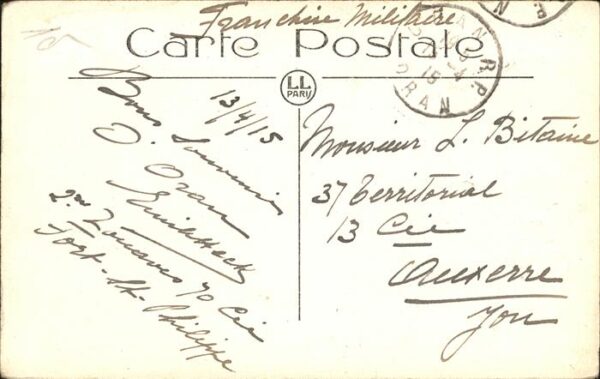 Franchise Militaire
Carte Postale
LL
PARIS
ORAN R.P.
ORAN
15
R.P.
13/4/15
Bons Souvenirs
D. Oran
2me Zouaves 70 Cie
Fort-St-Philippe
Monsieur L. Bitaine
37 Territorial
13 Cie
Auxerre
Yon